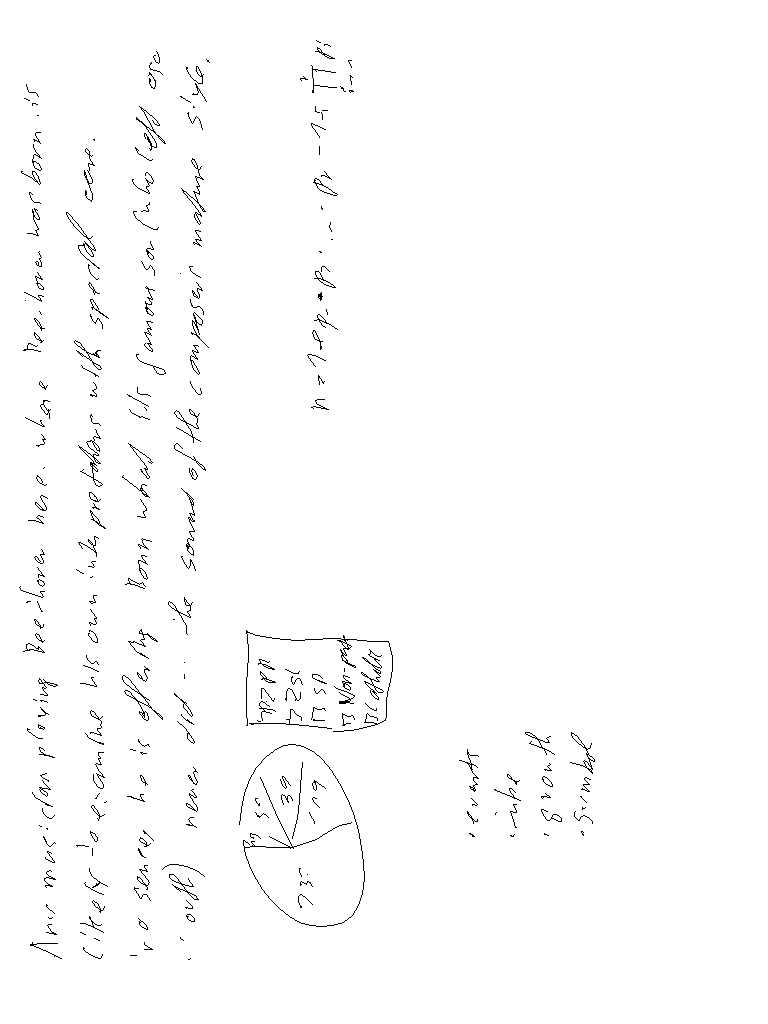 Any musician playing Beethoven here, where Beethoven was born, is
likely to examine his own interpretations with special care.
In a sense, he is offering Bonn what its famous son (who left as a
youth) never did -- the sound of the composer's mature style.
PZPR
ZSL
SD
Non-party
Catholic
49
39
events
inke
growth
symbol